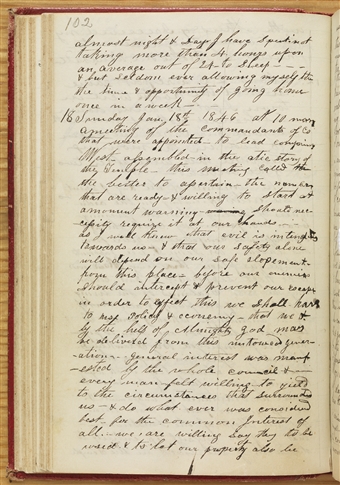 102
almost night & Day I have Spent not
taking more than 4 hours upon
an average out of 24 to Sleep - -
& but seldom ever allowing myself the
the time & opportunity of going home
once in a week - -
18 Sunday Jan. 18th 1846 at 10 morn
a meeting of the commandants of Co
that were appointed to lead companys
West - assembled in the atic story of
the Temple - this meeting called
the better to assertain the numbers
that are ready & willing to start at
a moment warning should nec-
essity require it at our hands - -
as we all know that evil is
towards us & that our safety alone
will depend on our safe elopement
from this place before our enemies
should intercept & prevent our escape
in order to effect this we shall have
to use policy & economy - that we &
by the help of Almighty god may
be delivered from this untoward gener-
ation - general interest was manif-
ested by the whole council & -
every man felt willing to yield
to the circumstances that surrounded
us - & do what ever was considered
best for the common Interest of
all - we are willing say they to be
used & to let our property also be